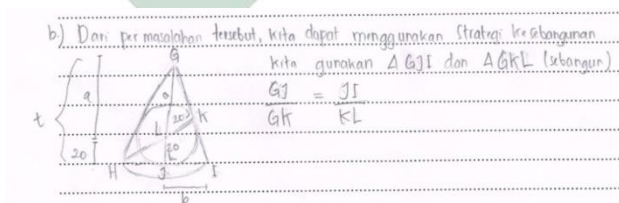 b.) Dari permasalahan tersebut, kita dapat menggunakan strategi kesebangunan
kita gunakan Δ GJI dan Δ GKL (sebangun)
GJ/GK = JI/KL
G
t
a
a
20
L
K
20
20
H
J
I
b